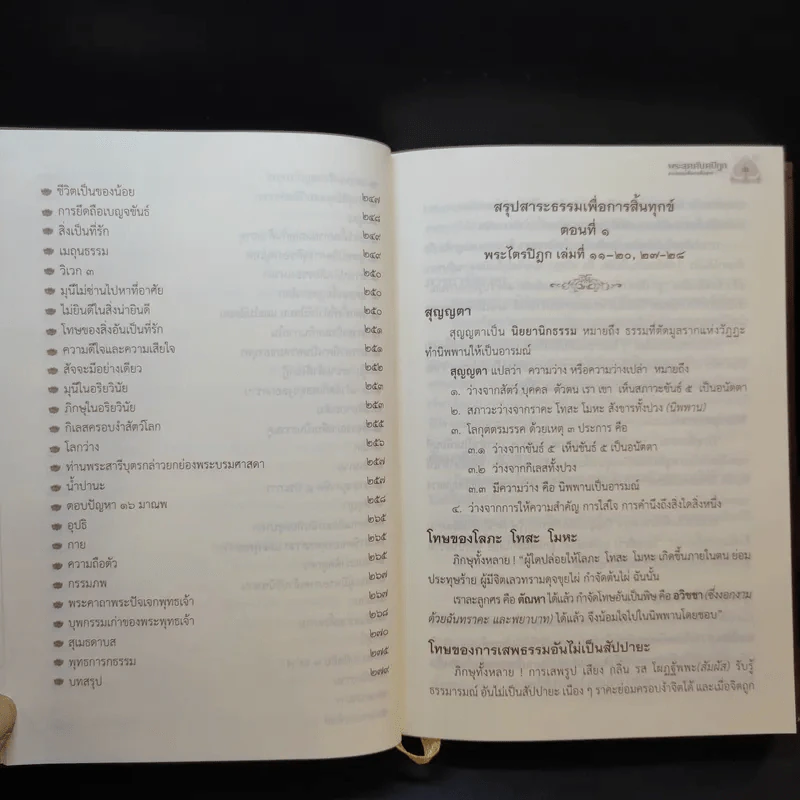 ชีวิตเป็นของน้อย ๒๔๗
การยึดถือเบญจขันธ์ ๒๔๘
สิ่งเป็นที่รัก ๒๔๙
เมถุนธรรม ๒๔๙
วิเวก ๓ ๒๕๐
มุนีไม่ซ่านไปหาที่อาศัย ๒๕๐
ไม่ยินดีในสิ่งน่ายินดี ๒๕๐
โทษของสิ่งอันเป็นที่รัก ๒๕๑
ความดีใจและความเสียใจ ๒๕๑
สัจจะมีอย่างเดียว ๒๕๒
มุนีในอริยวินัย ๒๕๓
ภิกษุในอริยวินัย ๒๕๓
กิเลสครอบงำสัตว์โลก ๒๕๕
โลกว่าง ๒๕๖
ท่านพระสารีบุตรกล่าวยกย่องพระบรมศาสดา ๒๕๗
น้ำปานะ ๒๕๗
ตอบปัญหา ๑๖ มาณพ ๒๕๘
อุปธิ ๒๖๕
กาย ๒๖๕
ความถือตัว ๒๖๕
กรรมภพ ๒๖๗
พระคาถาพระปัจเจกพุทธเจ้า ๒๖๗
บุพกรรมเก่าของพระพุทธเจ้า ๒๖๘
สุเมธดาบส ๒๗๐
พุทธการกธรรม ๒๗๕
บทสรุป ๒๗๙
สรุปสาระธรรมเพื่อการสิ้นทุกข์
ตอนที่ ๑
พระไตรปิฎก เล่มที่ ๑๑-๒๐, ๒๗-๒๘
สุญญตา
สุญญตาเป็น นิยยานิกธรรม หมายถึง ธรรมที่ตัดมูลรากแห่งวัฏฏะ
ทำนิพพานให้เป็นอารมณ์
สุญญตา แปลว่า ความว่าง หรือความว่างเปล่า หมายถึง
๑. ว่างจากสัตว์ บุคคล ตัวตน เรา เขา เห็นสภาวะขันธ์ ๕ เป็นอนัตตา
๒. สภาวะว่างจากราคะ โทสะ โมหะ สังขารทั้งปวง (นิพพาน)
๓. โลกุตตรมรรค ด้วยเหตุ ๓ ประการ คือ
๓.๑ ว่างจากขันธ์ ๕ เห็นขันธ์ ๕ เป็นอนัตตา
๓.๒ ว่างจากกิเลสทั้งปวง
๓.๓ มีความว่าง คือ นิพพานเป็นอารมณ์
๔. ว่างจากการให้ความสำคัญ การใส่ใจ การคำนึงถึงสิ่งใดสิ่งหนึ่ง
โทษของโลภะ โทสะ โมหะ
ภิกษุทั้งหลาย ! "ผู้ใดปล่อยให้โลภะ โทสะ โมหะ เกิดขึ้นภายในตน ย่อม
ประทุษร้าย ผู้มีจิตเลวทรามดุจขุยไผ่ กำจัดต้นไผ่ ฉันนั้น
เราละลูกศร คือ ตัณหา ได้แล้ว กำจัดโทษอันเป็นพิษ คือ อวิชชา (ซึ่งงอกงาม
ด้วยฉันทราคะ และพยาบาท) ได้แล้ว จึงน้อมใจไปในนิพพานโดยชอบ"
โทษของการเสพธรรมอันไม่เป็นสัปปายะ
ภิกษุทั้งหลาย ! การเสพรูป เสียง กลิ่น รส โผฏฐัพพะ(สัมผัส) รับรู้
ธรรมารมณ์ อันไม่เป็นสัปปายะ เนือง ๆ ราคะย่อมครอบงำจิตได้ และเมื่อจิตถูก